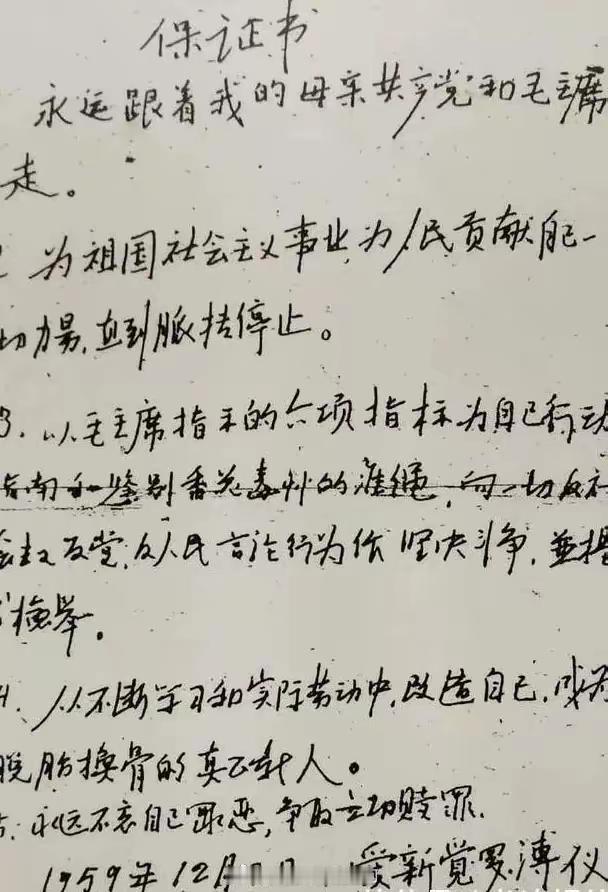 保证书
永远跟着我的母亲共产党和毛主席
走。
为祖国社会主义事业,为人民贡献自己一
切力量,直到脉搏停止。
3. 以毛主席指示的六项指标为自己行动
指南和鉴别香花毒草的准绳,向一切反社
会主义反党,反人民言论行为作坚决斗争,并揭
检举。
4. 从不断学习和实际劳动中,改造自己,成为
脱胎换骨的真正新人。
永远不忘自己罪恶,争取立功赎罪.
1959年12月 爱新觉罗溥仪